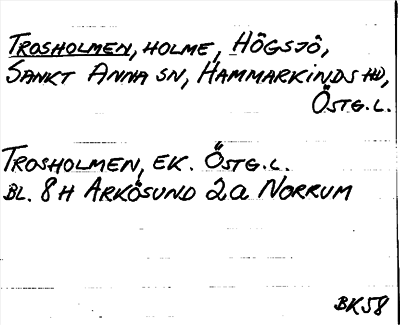 TROSHOLMEN, HOLME, HÖGSJÖ,
SANKT ANNA SN, HAMMARKINDS HD,
ÖSTG.L.
TROSHOLMEN, EK. ÖSTG.L.
BL. 8H ARKÖSUND 2a NORRUM
BK58